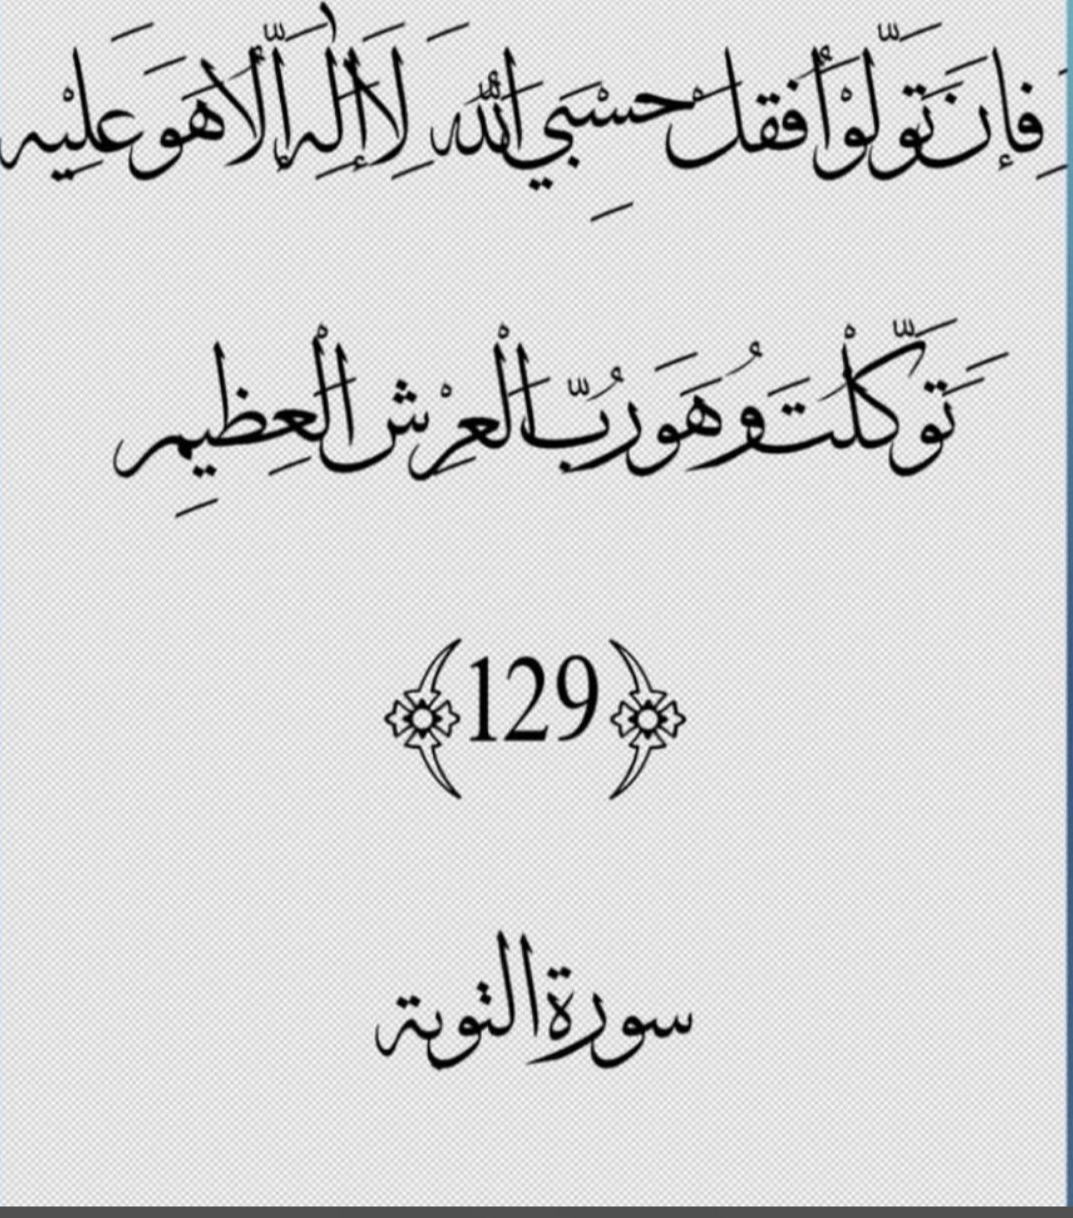 فَإِنْ تَوَلَّوْا فَقُلْ حَسْبِيَ اللَّهُ لَا إِلَٰهَ إِلَّا هُوَ عَلَيْهِ
تَوَكَّلْتُ وَهُوَ رَبُّ الْعَرْشِ الْعَظِيمِ
﴿129﴾
سورة التوبة